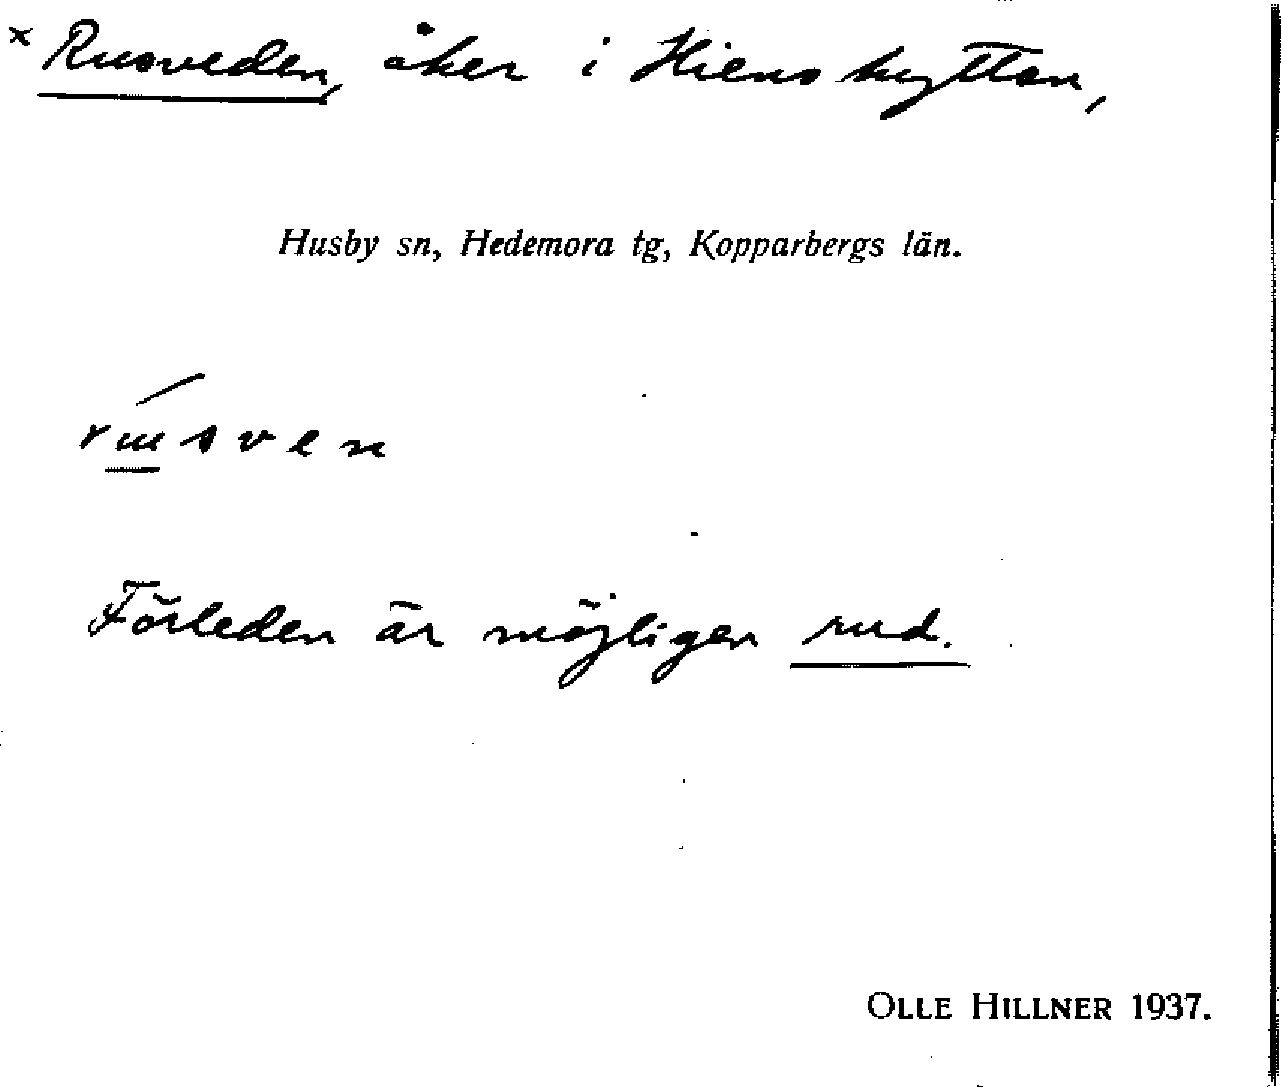 x Rusveden, åker i Hienshyttan,
Husby sn, Hedemora tg, Kopparbergs län.
Förleden är möjligen rud.
OLLE HILLNER 1937.